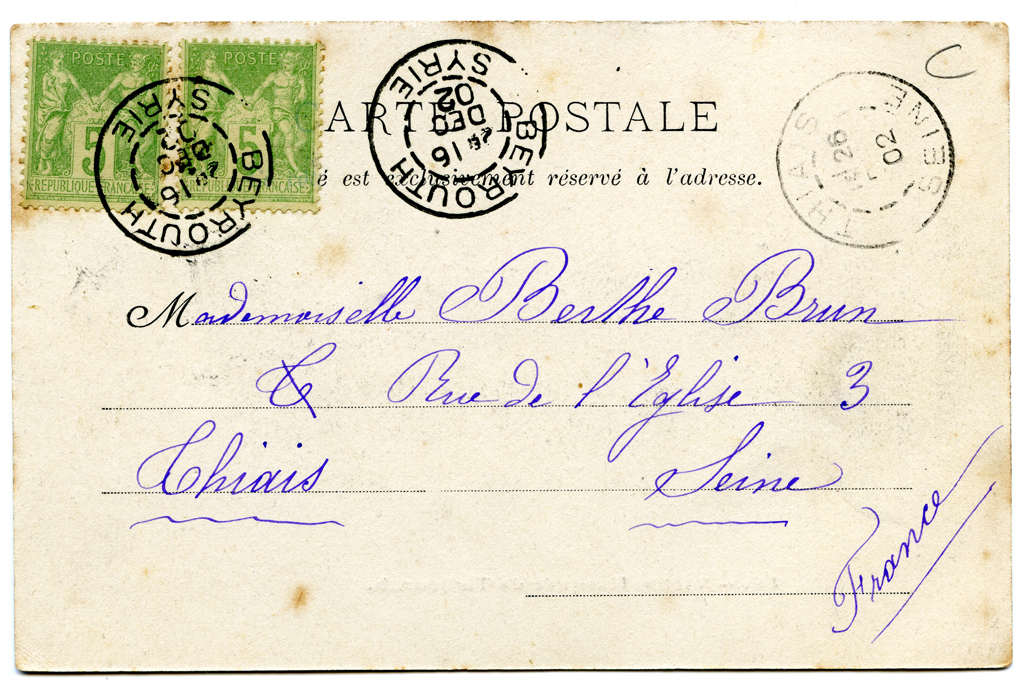 POSTE POSTE
5 5
RÉPUBLIQUE FRANÇAISE RÉPUBLIQUE FRANÇAISE
BEYROUTH
SYRIE
16
DEC
02
BEYROUTH
SYRIE
16
DEC
02
THIAIS
SEINE
26
02
C
CARTE POSTALE
é est exclusivement réservé à l'adresse.
Mademoiselle Berthe Brun
Rue de l'Eglise 3
Thiais Seine
France